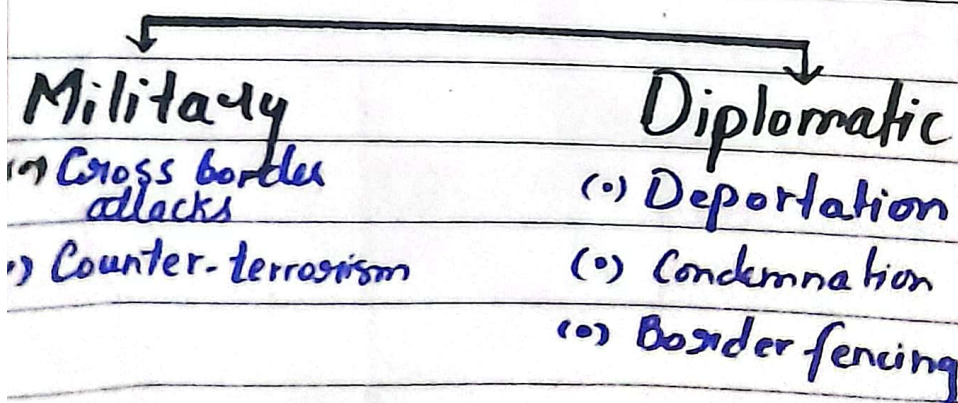 Military
Cross border
attacks
Counter-terrorism
Diplomatic
(•) Deportation
(•) Condemnation
(•) Border fencing